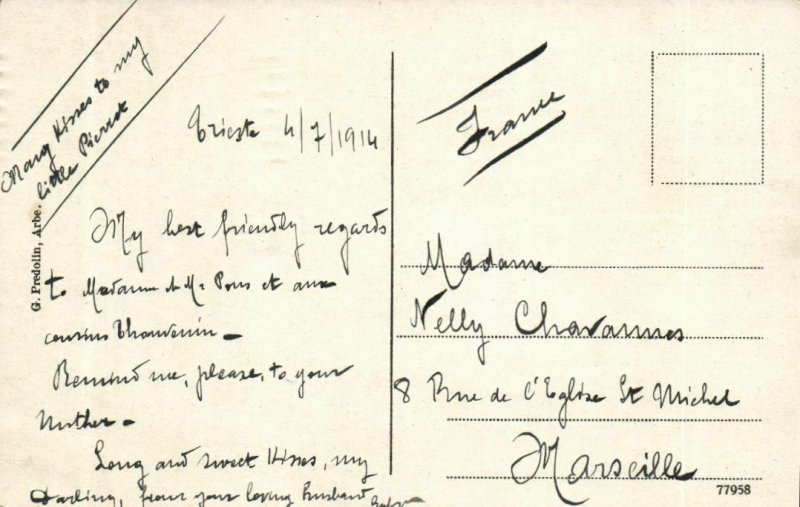 Many Kisses to my
little Pierrot
Trieste 4/7/1914
My best friendly regards
to Madame et Mr Pons et aux
cousins Thouvenin -
Remind me, please, to your
Mother -
Long and sweet Kisses, my
Darling, from your loving husband
G. Predolin, Arbe.
France
Madame
Nelly Chavannes
8 Rue de l'Eglise St Michel
Marseille
77958